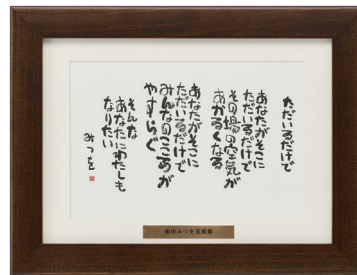 ただいるだけで
あなたがそこに
ただいるだけで
その場の空気が
あかるくなる
あなたがそこに
ただいるだけで
みんなのこころが
やすらぐ
そんな
あなたにわたしも
なりたい
みつを
相田みつを美術館